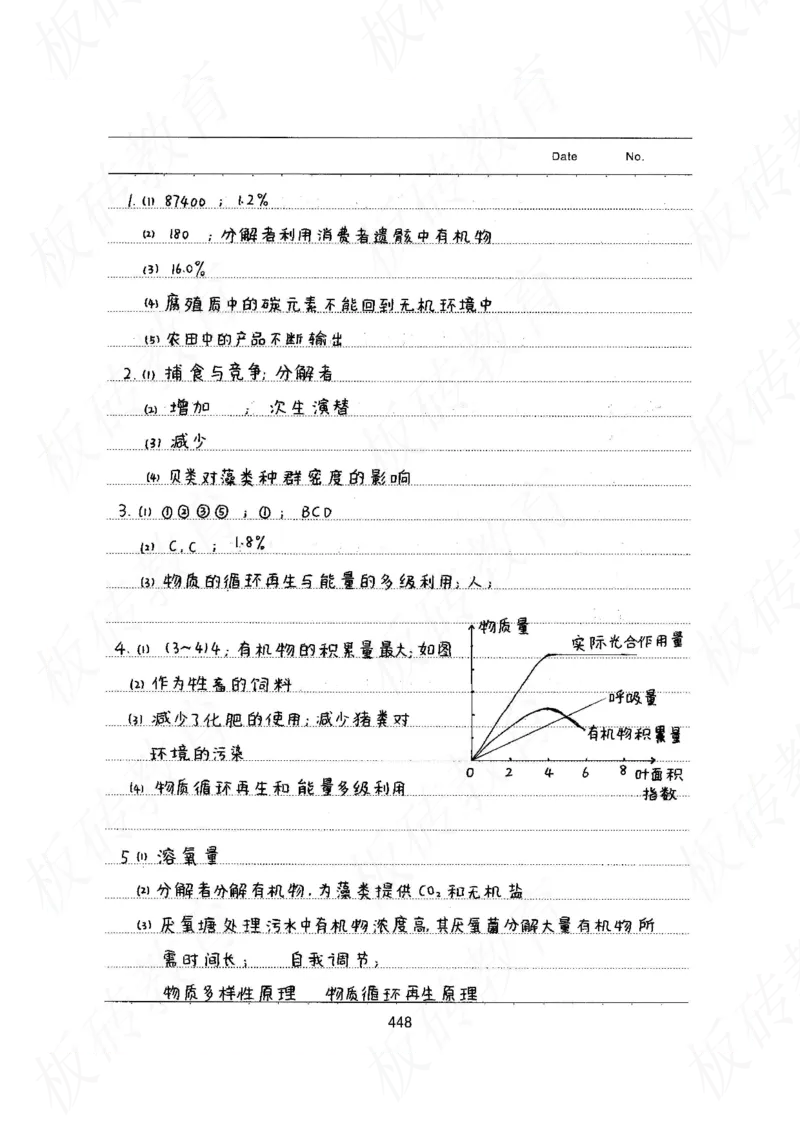 Date No.
1. (1) 87400 ; 1.2%
(2) 180 ; 分解者利用消费者遗骸中有机物
(3) 16.0%
(4) 腐殖质中的碳元素不能回到无机环境中
(5) 农田中的产品不断输出
2. (1) 捕食与竞争; 分解者
(2) 增加 ; 次生演替
(3) 减少
(4) 贝类对藻类种群密度的影响
3. (1) ①②③⑤ ; ① ; BCD
(2) C, C ; 1.8%
(3) 物质的循环再生与能量的多级利用; 人;
4. (1) (3~4)4; 有机物的积累量最大; 如图
(2) 作为牲畜的饲料
(3) 减少了化肥的使用; 减少猪粪对
环境的污染
(4) 物质循环再生和能量多级利用
物质量
实际光合作用量
呼吸量
有机物积累量
0 2 4 6 8 叶面积
指数
5 (1) 溶氧量
(2) 分解者分解有机物, 为藻类提供CO₂和无机盐
(3) 厌氧塘处理污水中有机物浓度高, 其厌氧菌分解大量有机物所
需时间长; 自我调节;
物质多样性原理 物质循环再生原理
448
板砖教育